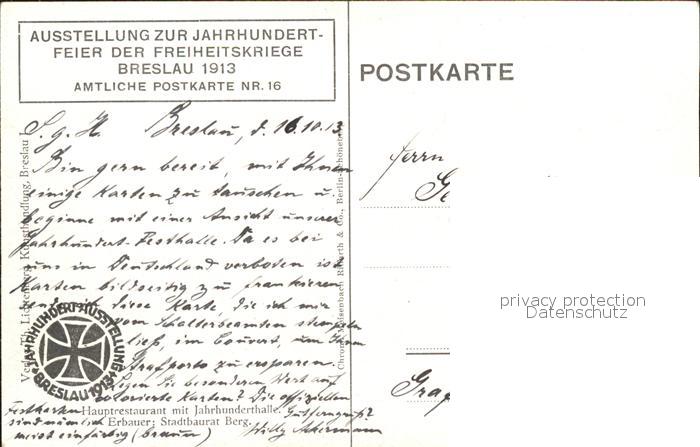 AUSSTELLUNG ZUR JAHRHUNDERT-
FEIER DER FREIHEITSKRIEGE
BRESLAU 1913
AMTLICHE POSTKARTE NR. 16
POSTKARTE
S. g. H. Breslau, d. 16.10.13.
Bin gern bereit, mit Ihnen
einige Karten zu tauschen u.
beginne mit einer Ansicht unserer
Jahrhundert-Festhalle. Da es bei
uns in Deutschland verboten ist
Karten bildseitig zu frankieren
ich diese Karte, die ich mir
vom Schalterbeamten stempeln
ließ, im Couvert, um Ihnen
Strafporto zu ersparen.
Legen Sie besondern Wert auf
colorierte Karten? Die offiziellen
Festkarten
sind nämlich
meist einfarbig (braun)
Gutferngruß!
Willy
Hauptrestaurant mit Jahrhunderthalle.
Erbauer: Stadtbaurat Berg.
JAHRHUNDERT-AUSSTELLUNG
BRESLAU 1913
Kunsthandlung, Breslau I.
& Co., Berlin-Schöneberg
Herrn
privacy protection
Datenschutz